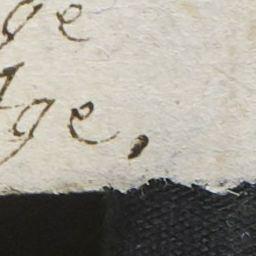 ge
ge,